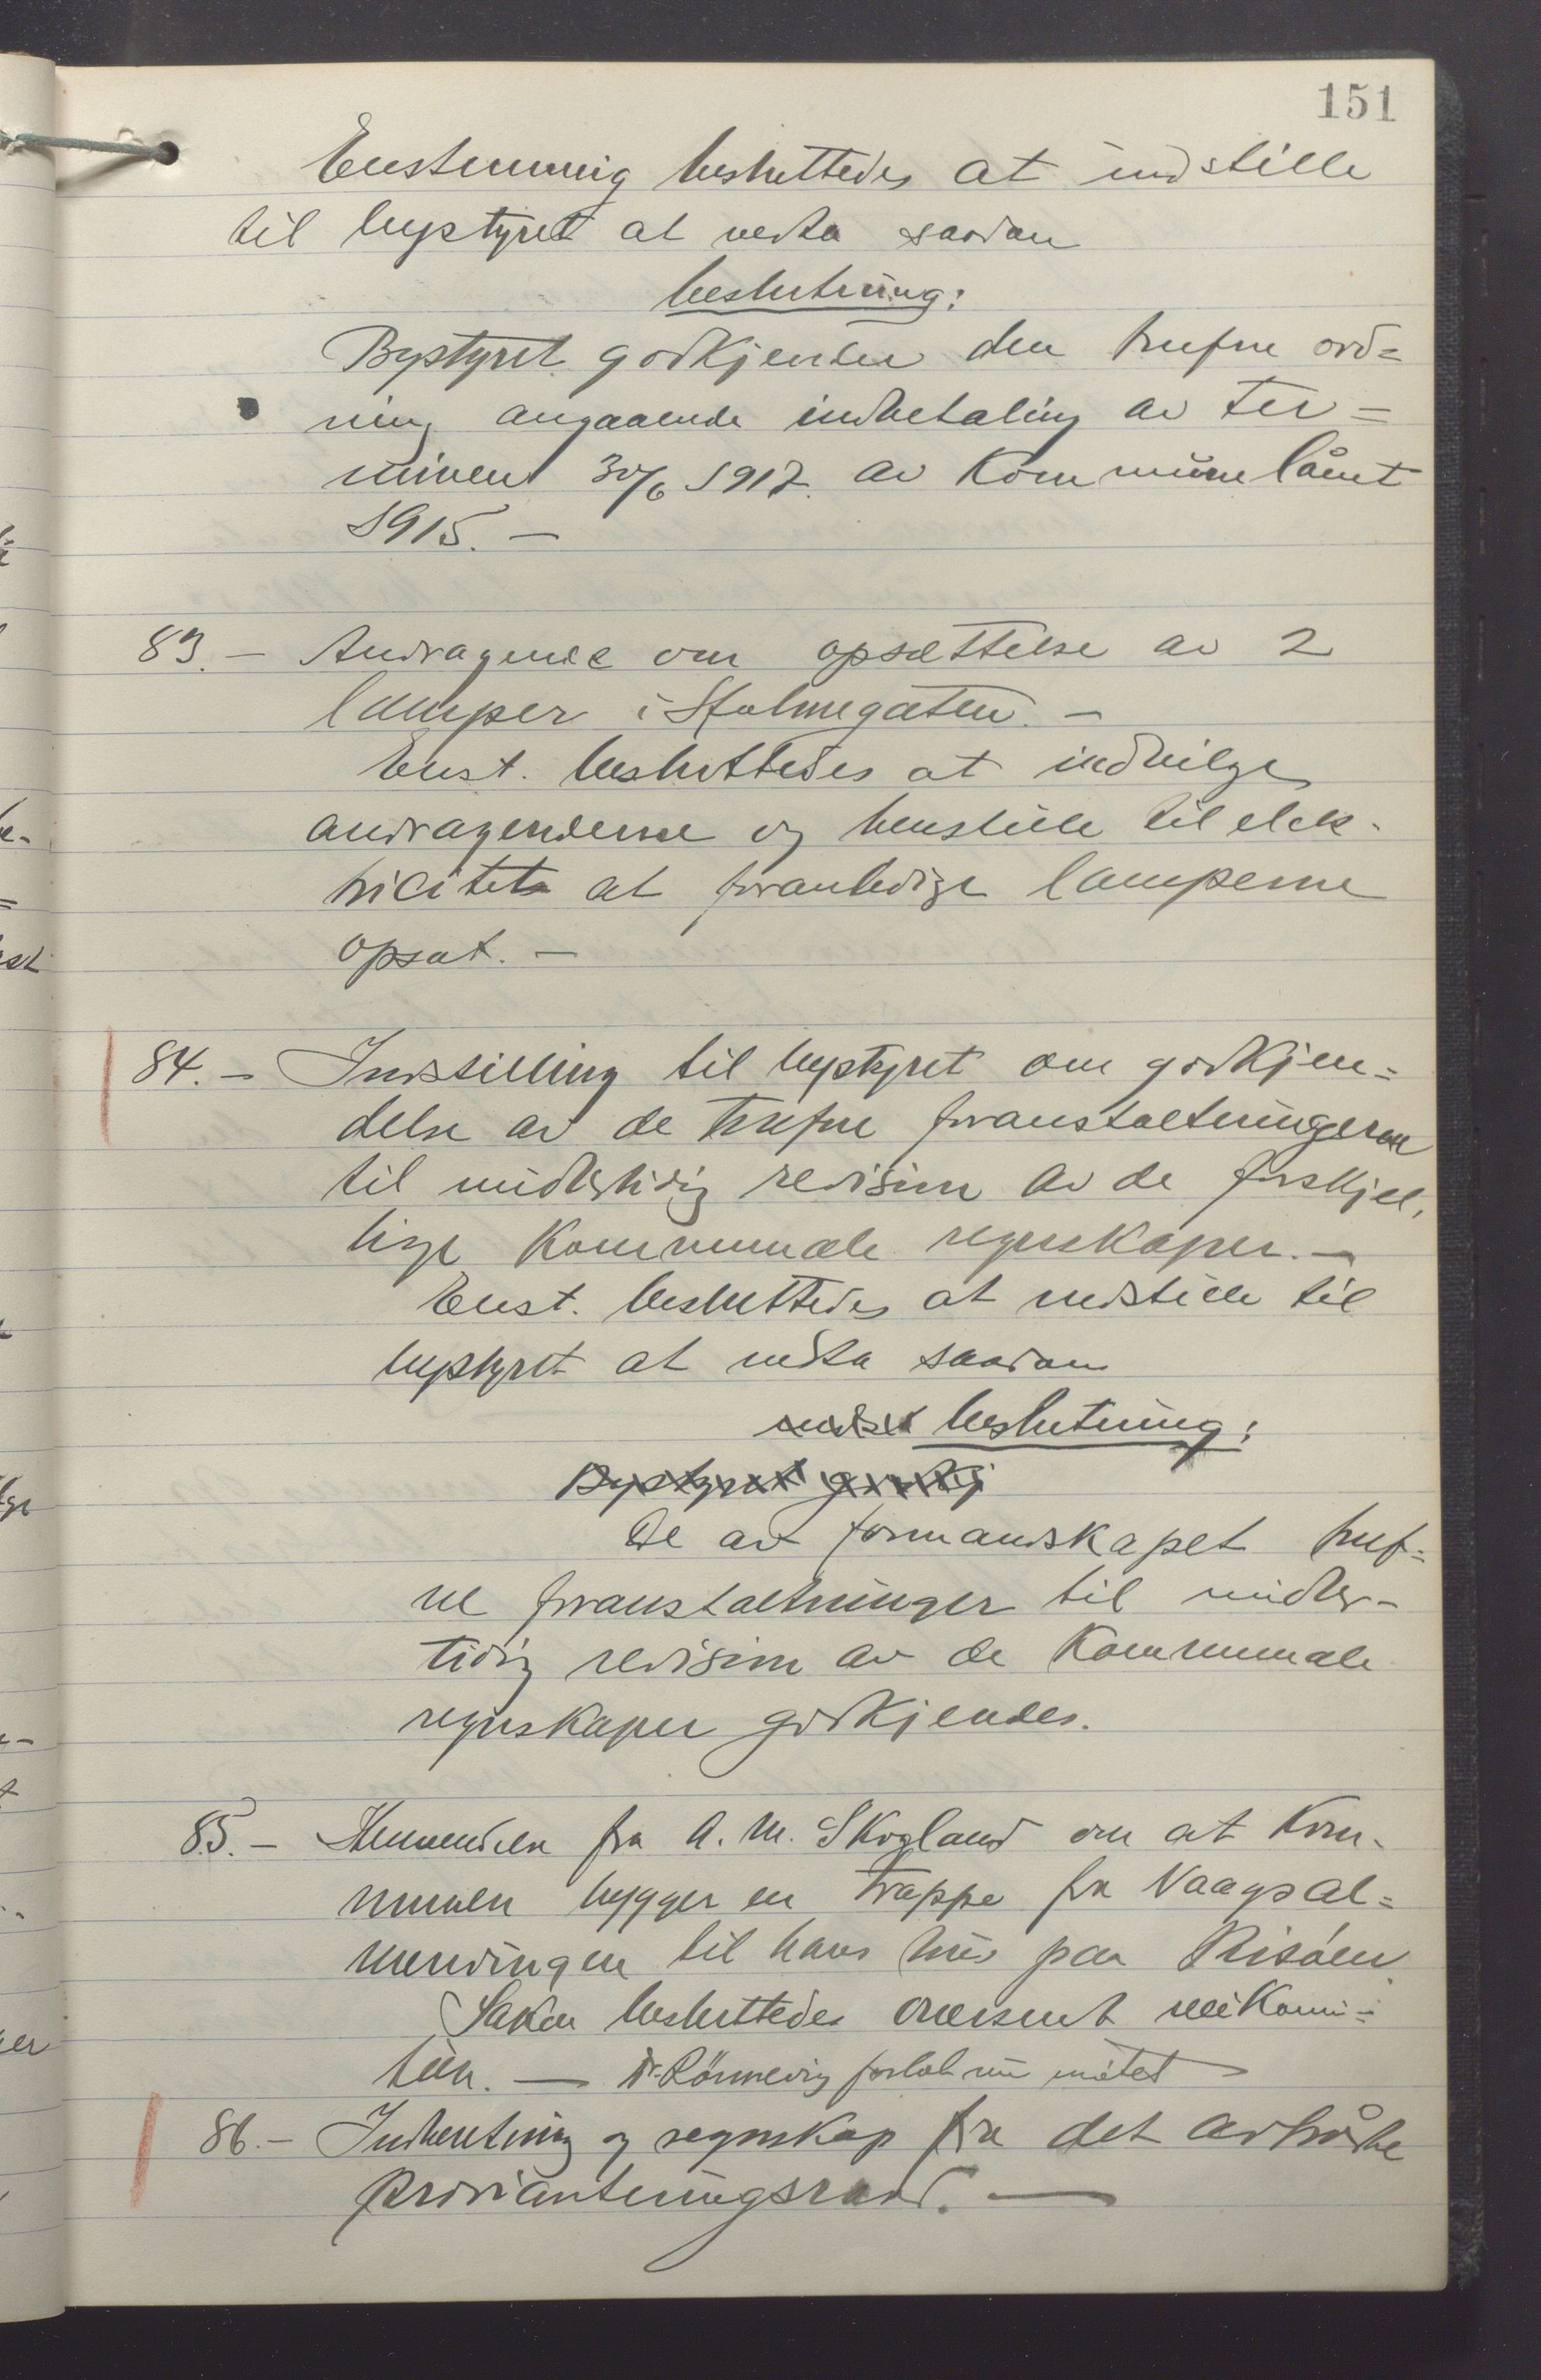 151
Enstemmig besluttedes at indstille
til bystyret at vedta saadan
beslutning:
Bystyret godkjender den trufne ord=
ning angaaende indbetaling av ter=
minen 30/6 1917. av Kommunelånet
1915. —
83. — Andragende om opsættelse av 2
lamper i Holmegaten. —
Enst. besluttedes at indvilge
andragenderne og henstille til elek-
tricitets at foranledige lamperne
opsat. —
84. — Indstilling til bystyret om godkjen=
delse av de trufne foranstaltningerne
til midlertidig revision av de forskjel,
lige Kommunale regnskaper. —
Enst. besluttedes at indstille til
bystyret at vedta saadan
beslutning:
Bystyret godkj
De av formandskapet truf=
ne foranstaltninger til midler-
tidig revision av de Kommunale
regnskaper godkjendes.
85. — Henvendelse fra A. M. Skogland om at Kom-
munen bygger en trappe fra Vaagsal=
mendingen til hans hus paa Risøen.
Saken besluttedes oversendt veikomi=
teen. — Dr. Rönnevig forlot nu møtet
86. — Indhentning og regnskap fra det avtrådte
Provianteringsraad. —